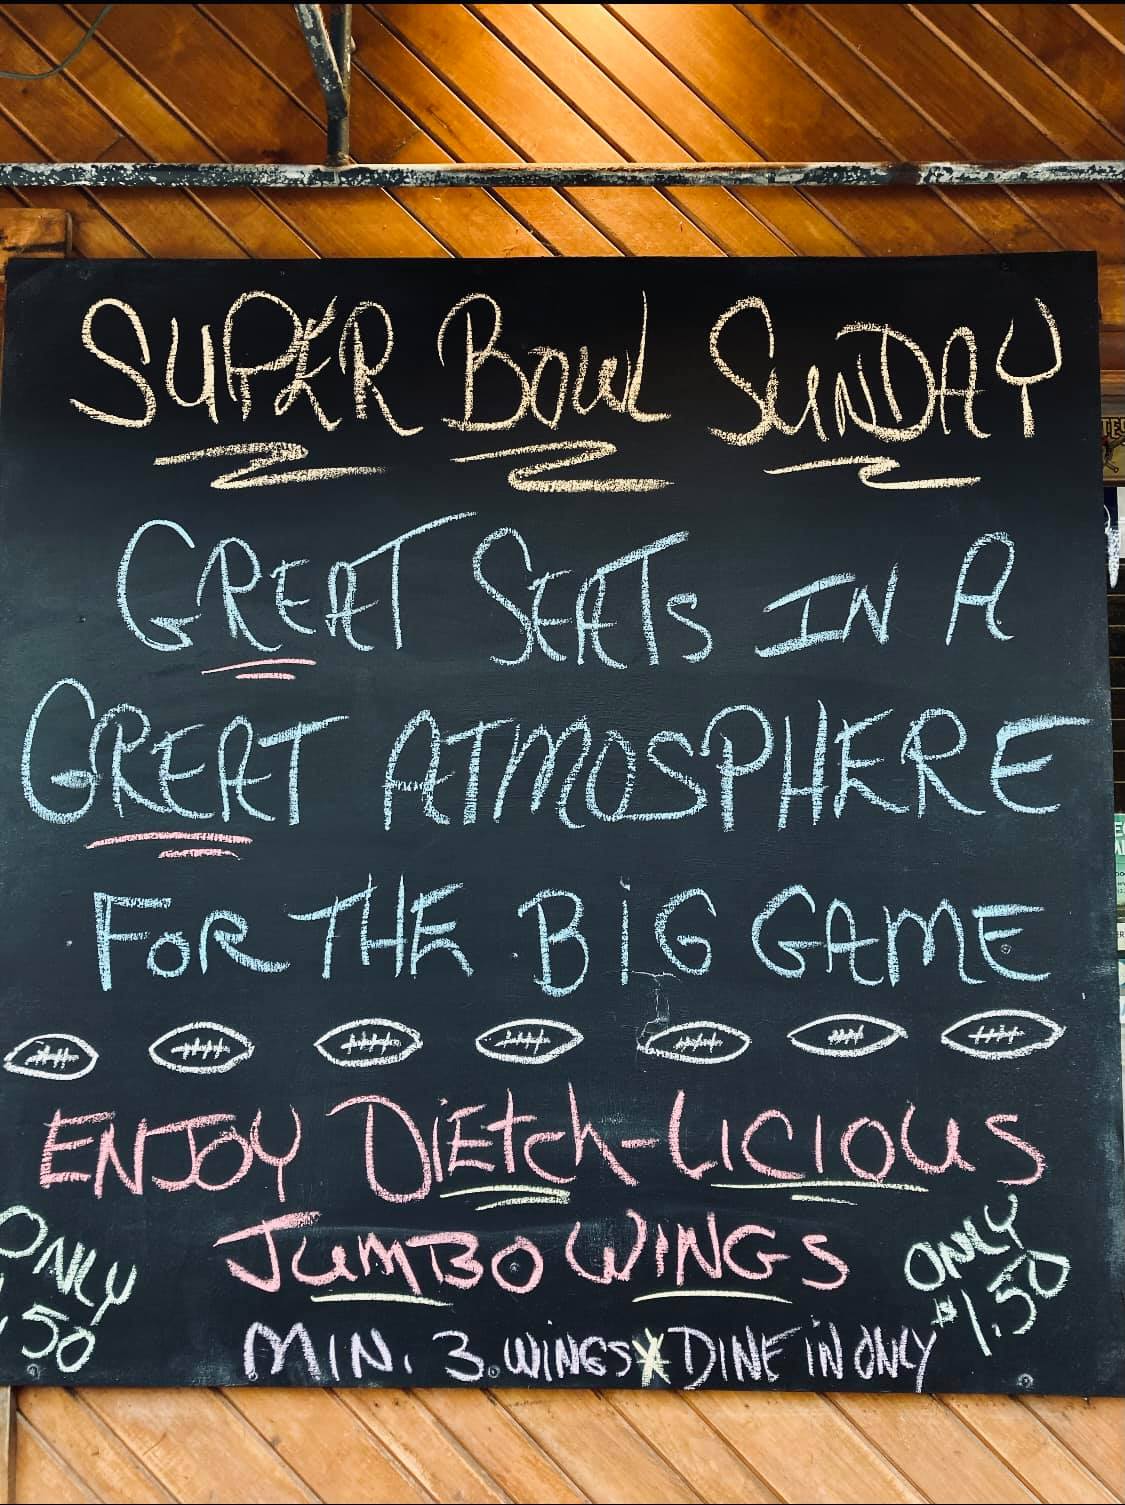 SUPER BOWL SUNDAY
GREAT SEATS IN A
GREAT ATMOSPHERE
FOR THE BIG GAME
ENJOY DIETCH-LICIOUS
JUMBO WINGS
ONLY
.50
ONLY
$1.50
MIN. 3 WINGS * DINE IN ONLY